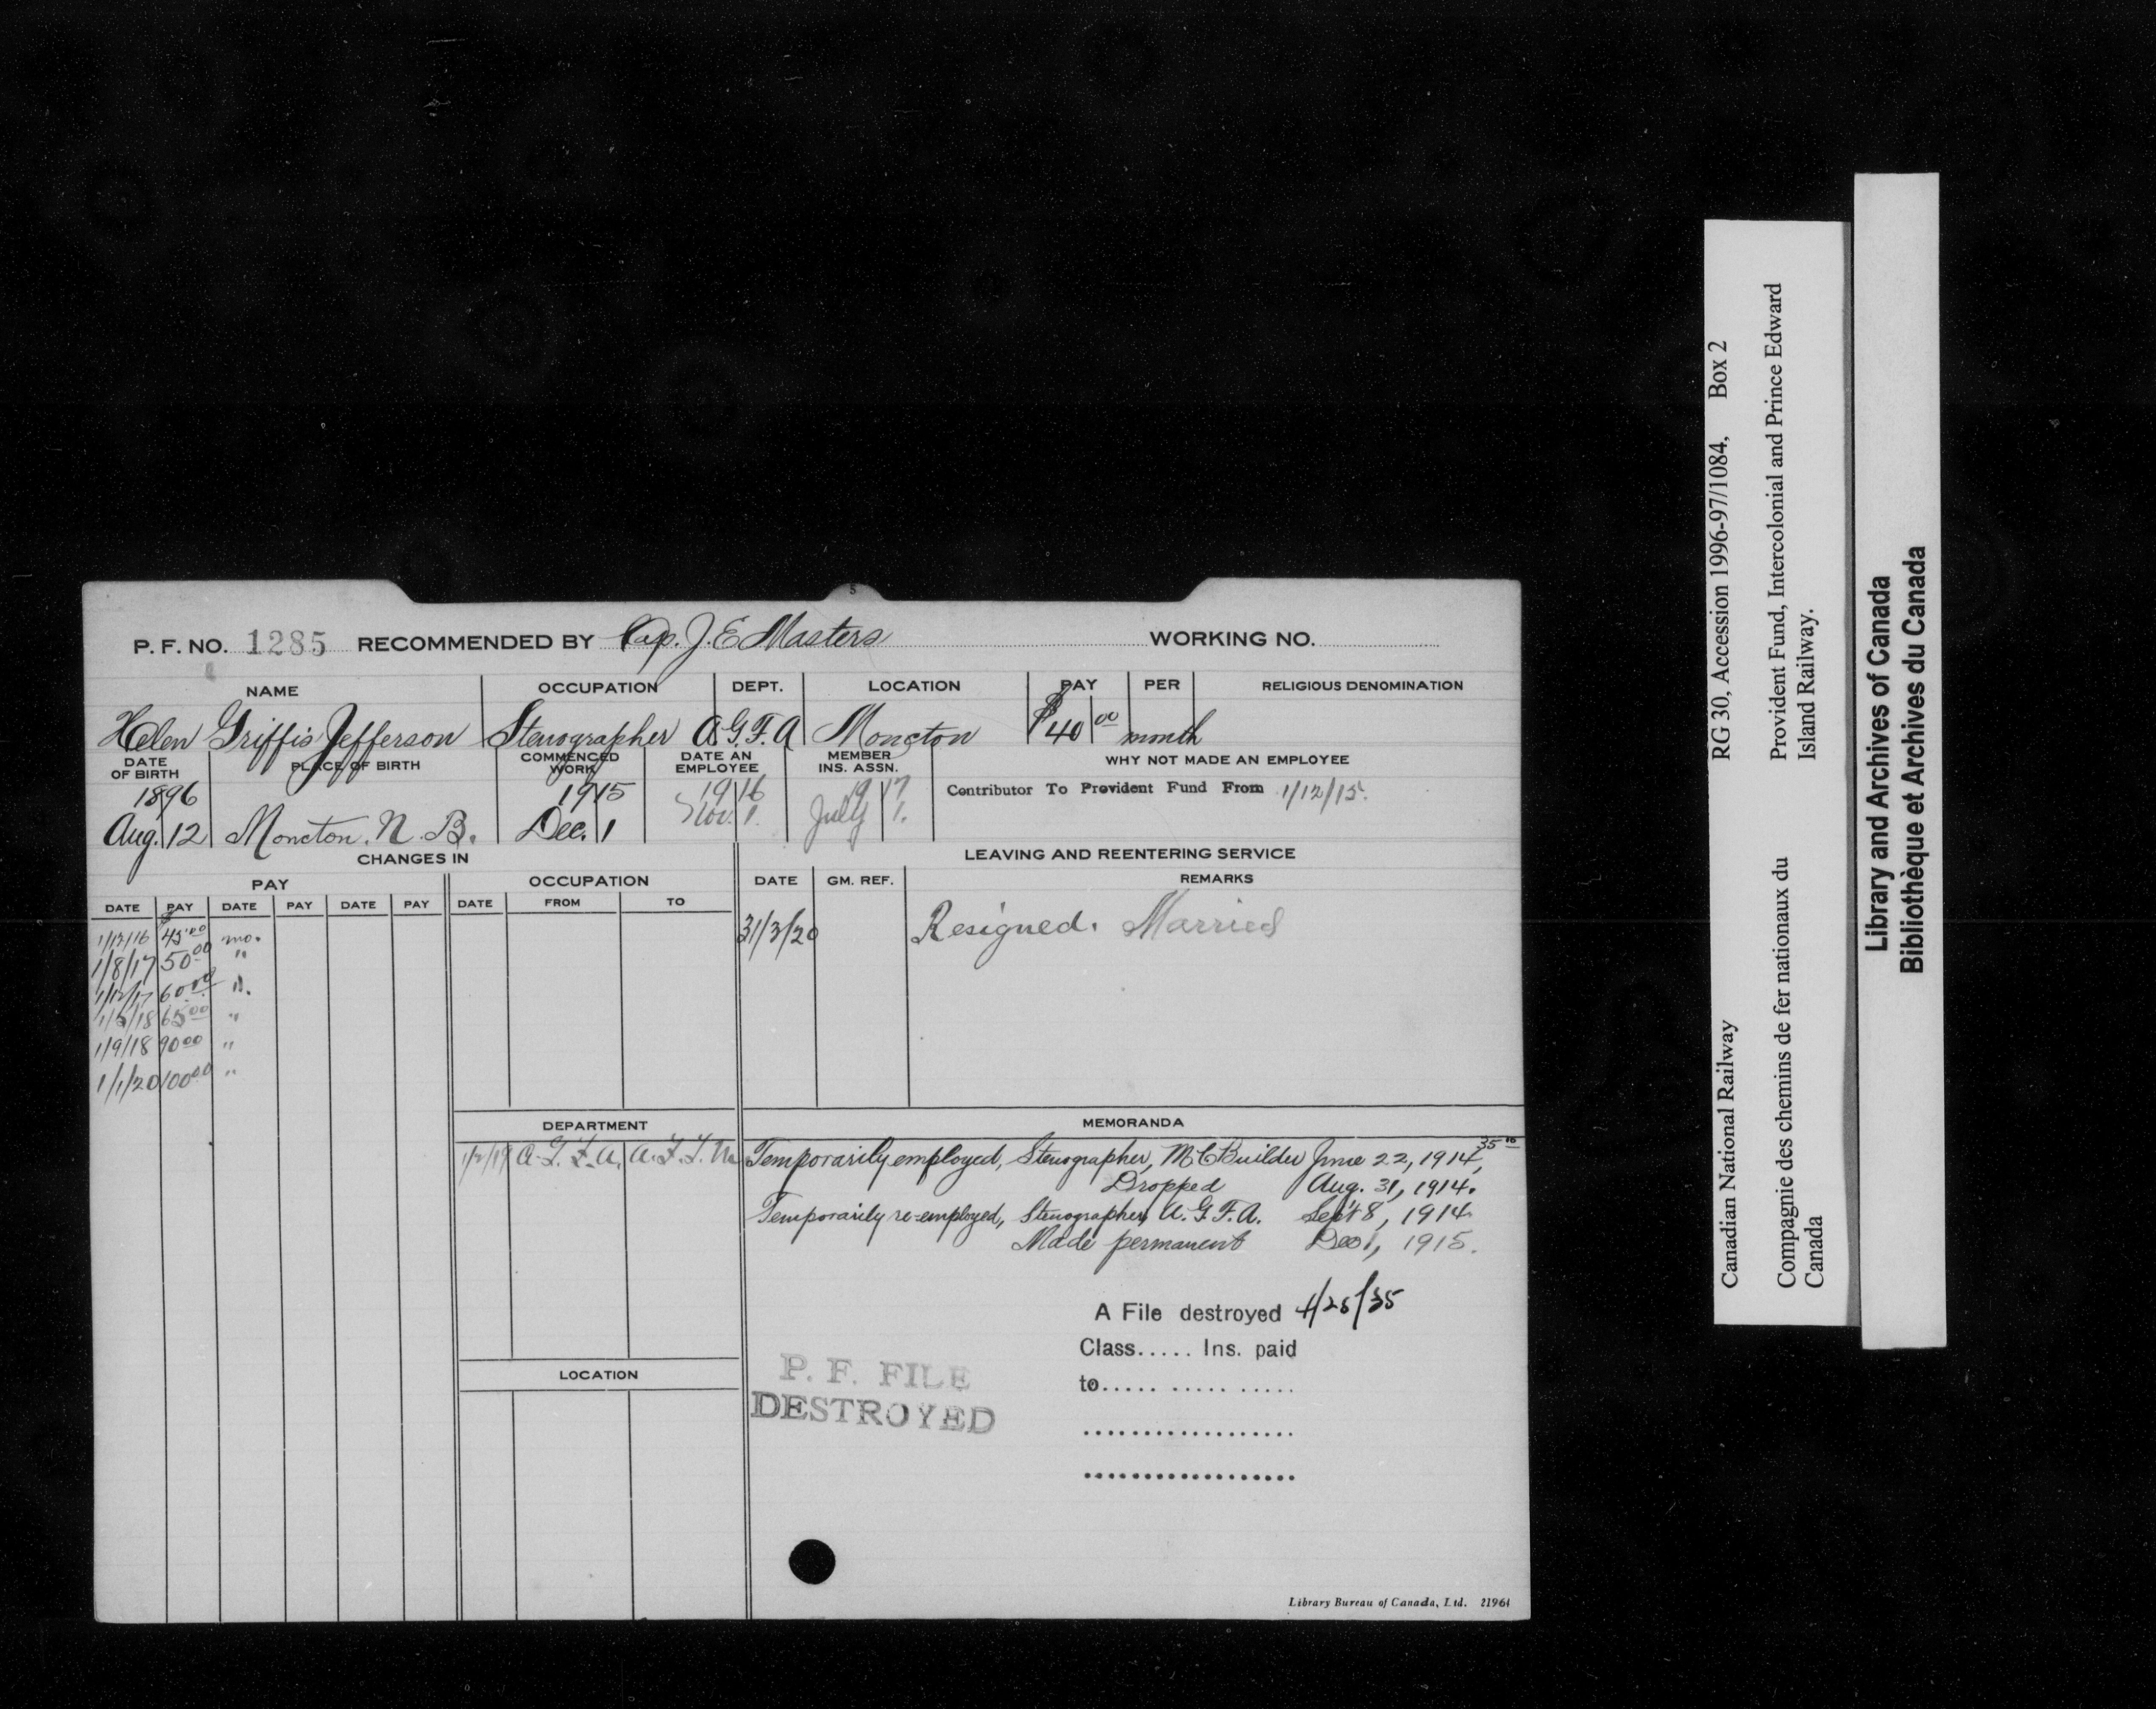 5
P. F. NO. 1285 RECOMMENDED BY Cap. J. E. Masters WORKING NO.
NAME OCCUPATION DEPT. LOCATION PAY PER RELIGIOUS DENOMINATION
Helen Griffis Jefferson Stenographer A.G.F.A Moncton $40 00 month
DATE OF BIRTH PLACE OF BIRTH COMMENCED WORK DATE AN EMPLOYEE MEMBER INS. ASSN. WHY NOT MADE AN EMPLOYEE
1896 1915 1916 1917 Contributor To Provident Fund From 1/12/15.
Aug. 12 Moncton. N. B. Dec. 1 Nov. 1. July 1.
CHANGES IN LEAVING AND REENTERING SERVICE
PAY OCCUPATION DATE GM. REF. REMARKS
DATE PAY DATE PAY DATE PAY DATE FROM TO
31/3/20 Resigned. Married
1/12/16 $45.00 mo.
1/8/17 50.00 "
1/12/17 60.00 ".
1/5/18 65.00 "
1/9/18 90.00 "
1/1/20 100.00 "
DEPARTMENT MEMORANDA
A.G.F.A.
Temporarily employed, Stenographer, M C Builder June 22, 1914, 35
Dropped Aug. 31, 1914.
Temporarily re-employed, Stenographer, A.G.F.A. Sept 8, 1914
Made permanent Dec 1, 1915.
A File destroyed 4/25/35
Class..... Ins. paid
to..... ..... .....
P. F. FILE
DESTROYED
LOCATION
Library Bureau of Canada, Ltd. 21961
Canadian National Railway RG 30, Accession 1996-97/1084, Box 2
Compagnie des chemins de fer nationaux du Provident Fund, Intercolonial and Prince Edward
Canada Island Railway.
Library and Archives of Canada
Bibliothèque et Archives du Canada